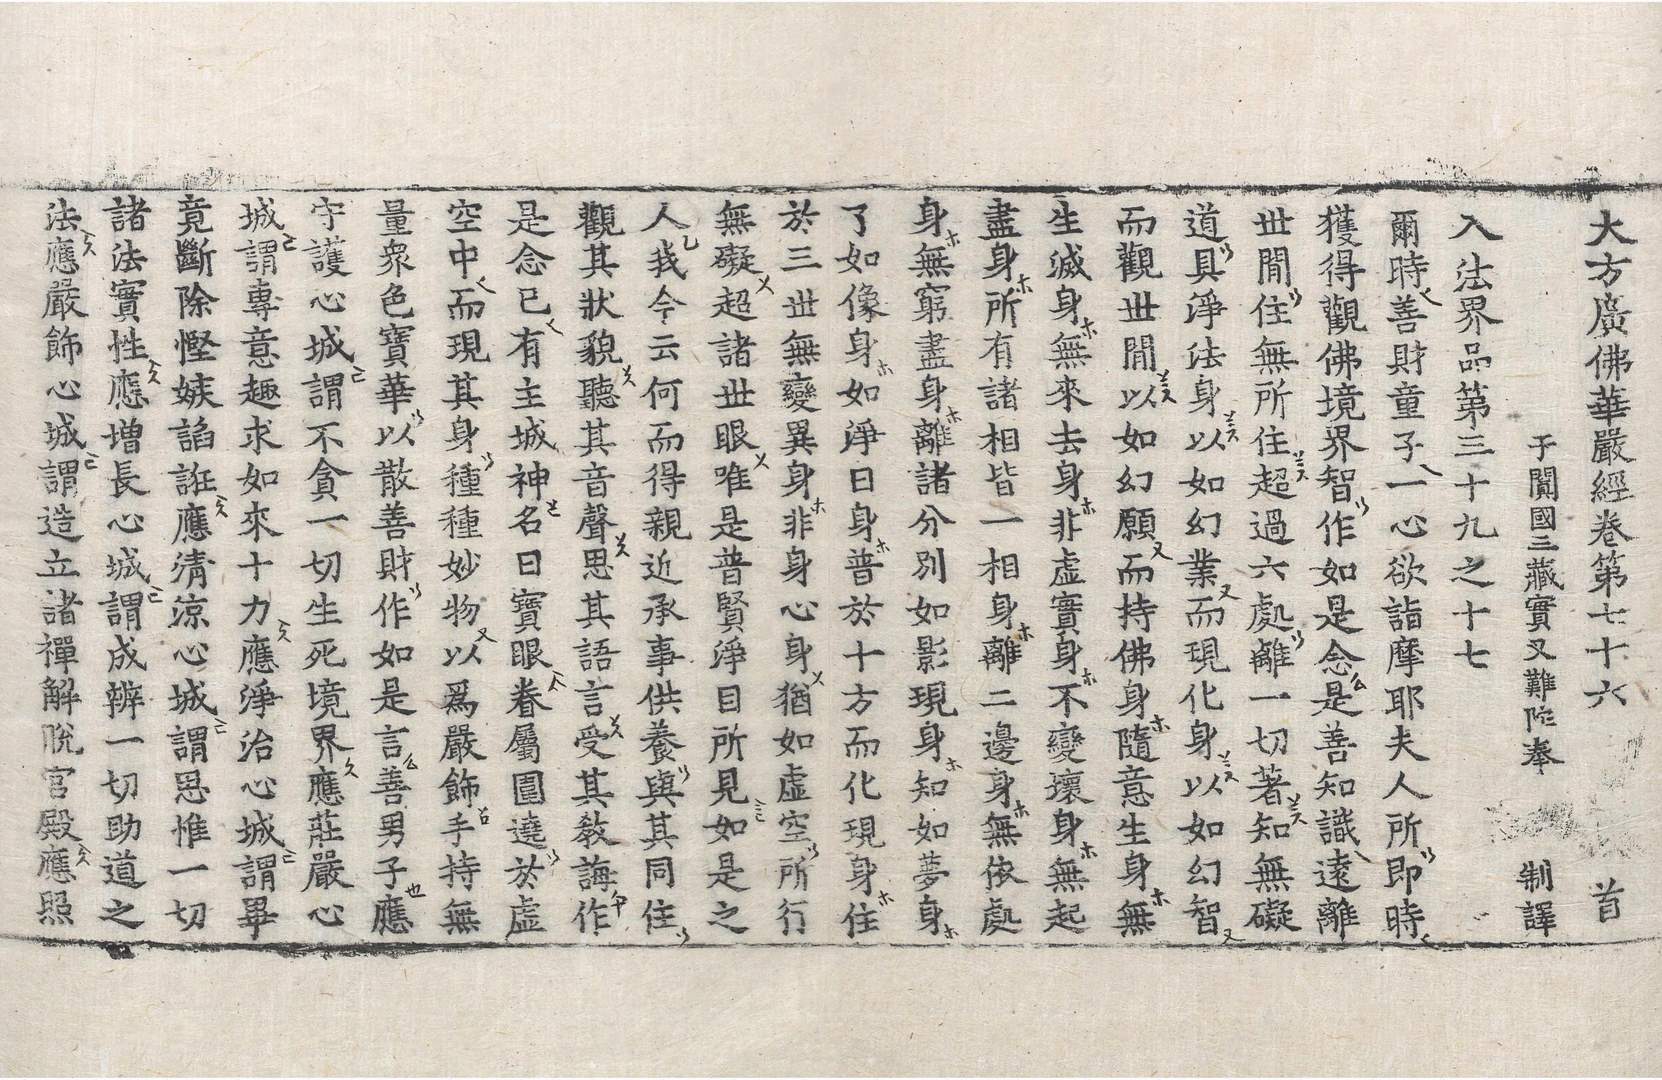 大方廣佛華嚴經卷第七十六 首
于闐國三藏實叉難陀奉 制譯
入法界品第三十九之十七
爾時善財童子一心欲詣摩耶夫人所即時
獲得觀佛境界智作如是念是善知識遠離
世間住無所住超過六處離一切著知無礙
道具淨法身以如幻業而現化身以如幻智
而觀世間以如幻願而持佛身隨意生身無
生滅身無來去身非虛實身不變壞身無起
盡身所有諸相皆一相身離二邊身無依處
身無窮盡身離諸分別如影現身知如夢身
了如像身如淨日身普於十方而化現身住
於三世無變異身非身心身猶如虛空所行
無礙超諸世眼唯是普賢淨目所見如是之
人我今云何而得親近承事供養與其同住
觀其狀貌聽其音聲思其語言受其教誨作
是念已有主城神名曰寶眼眷屬圍遶於虛
空中而現其身種種妙物以為嚴飾手持無
量眾色寶華以散善財作如是言善男子應
守護心城謂不貪一切生死境界應莊嚴心
城謂專意趣求如來十力應淨治心城謂畢
竟斷除慳嫉諂誑應清涼心城謂思惟一切
諸法實性應增長心城謂成辦一切助道之
法應嚴飾心城謂造立諸禪解脫宮殿應照